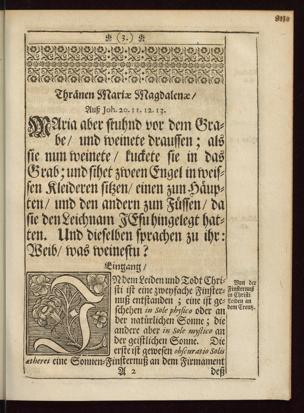 (3.)
Thränen Mariæ Magdalenæ/
Auß Joh. 20. 11. 12. 13.
MAria aber stuhnd vor dem Gra-
be/ und weinete draussen; als
sie nun weinete/ kuckete sie in das
Grab; und sihet zween Engel in weis-
sen Kleideren sitzen/ einen zum Häup-
ten/ und den andern zum Füssen/ da
sie den Leichnam JEsu hingelegt hat-
ten. Und dieselben sprachen zu ihr:
Weib/ was weinestu?
Eingang/
INdem Leiden und Todt Chri-
sti ist eine zweyfache Finster-
nuß entstanden; eine ist ge-
schehen in Sole physico oder an
der natürlichen Sonne; die
andere aber in Sole mystico an
der geistlichen Sonne. Die
erste ist gewesen obscuratio Solis
ætherei eine Sonnen-Finsternuß an dem Firmament
A 2 deß
Von der
Finsternus
in Christi
Leiden an
dem Creutz.